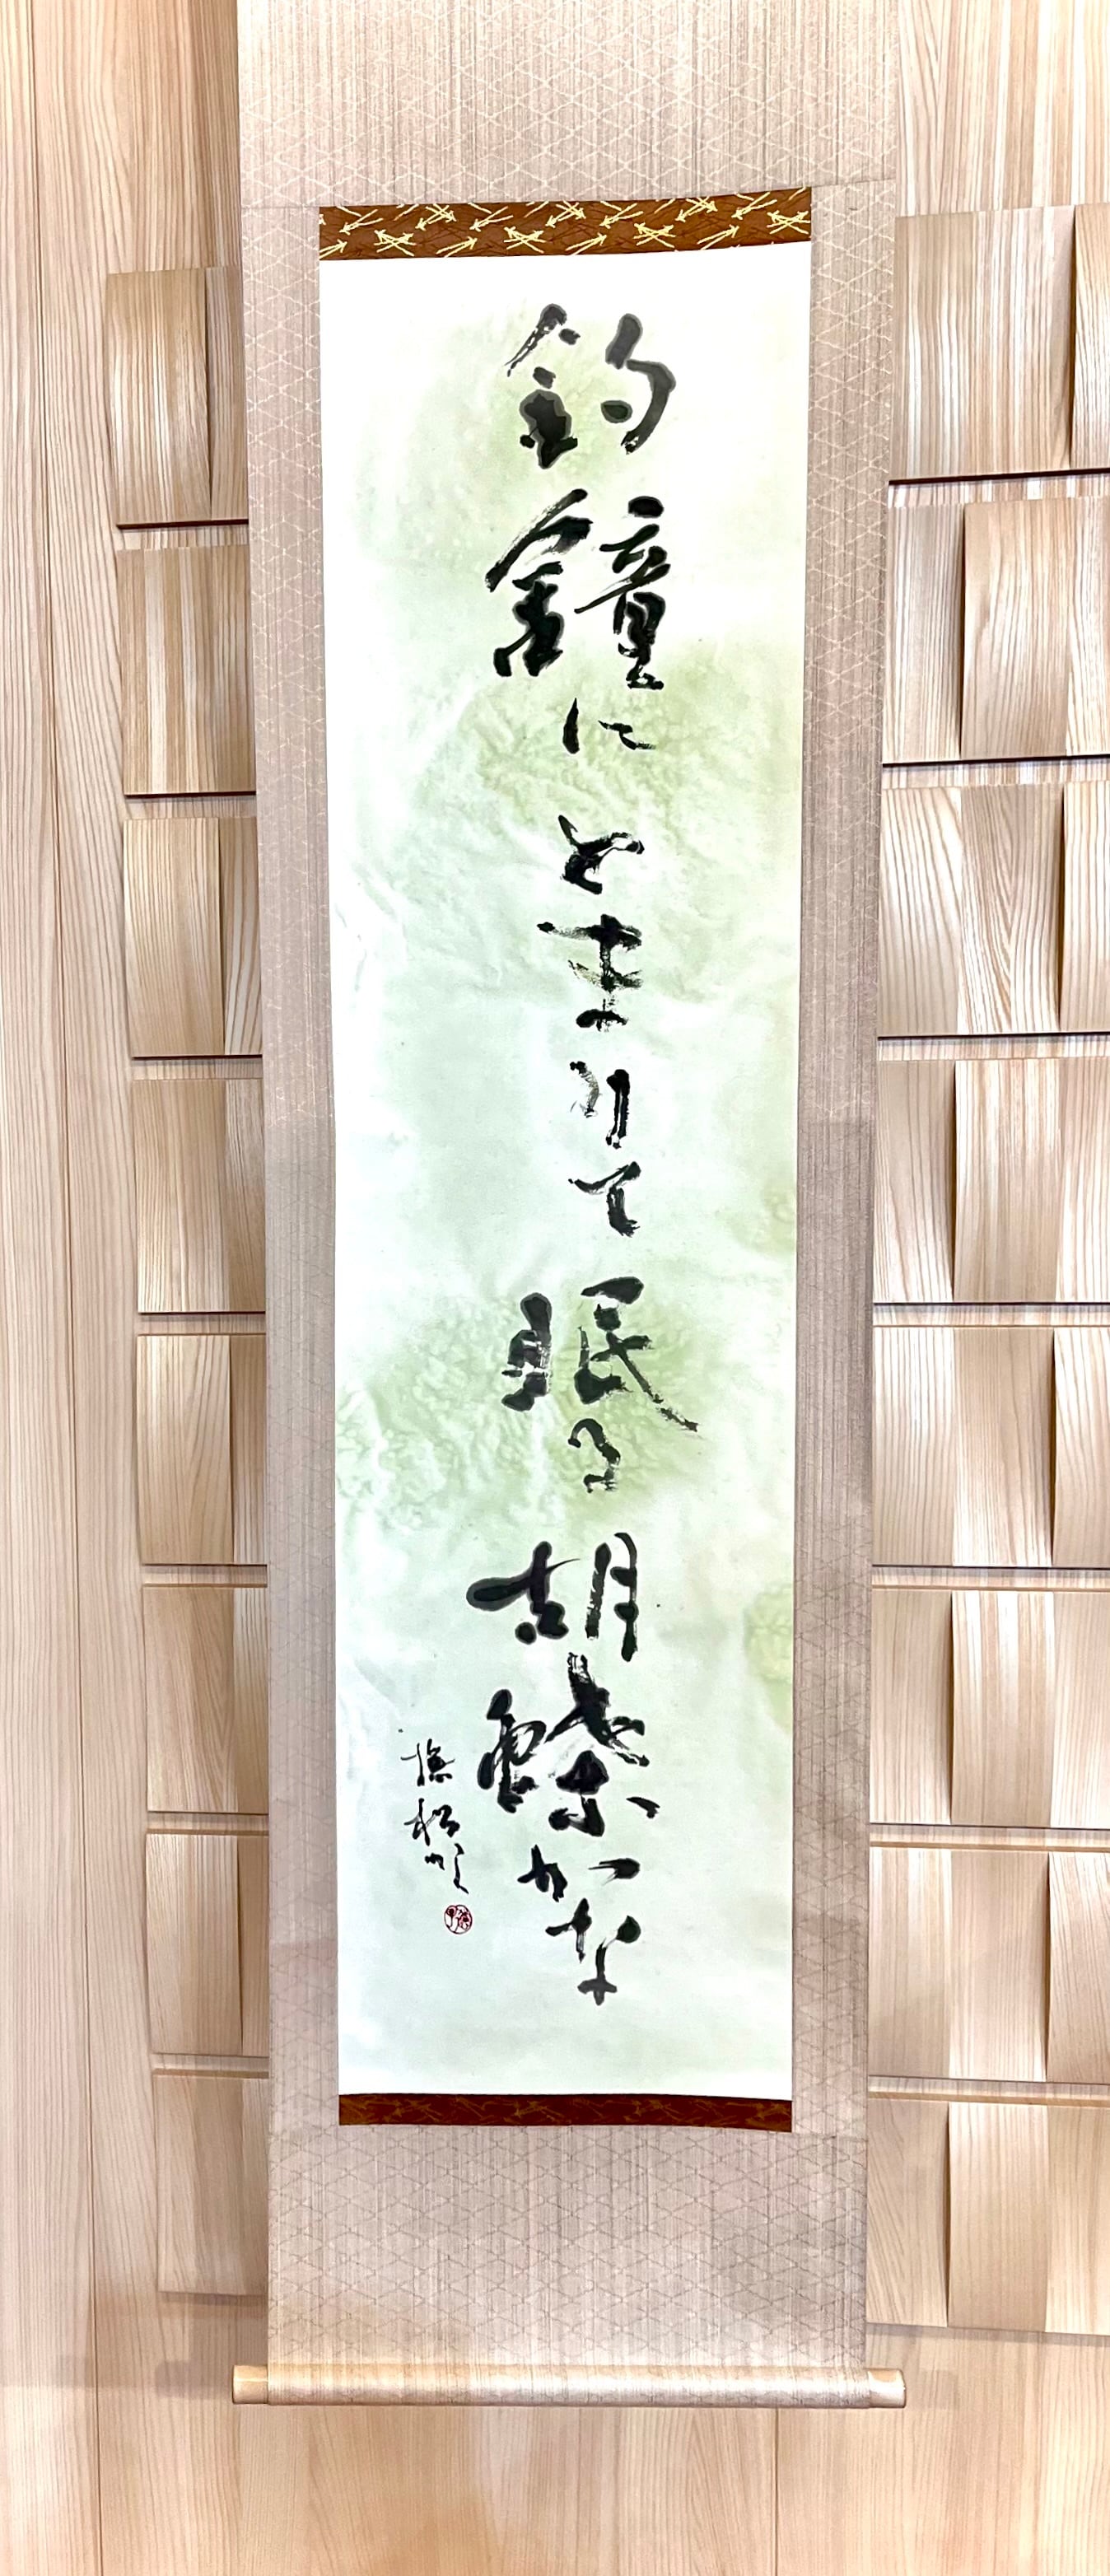 釣鐘にとまりて眠る胡蝶かな